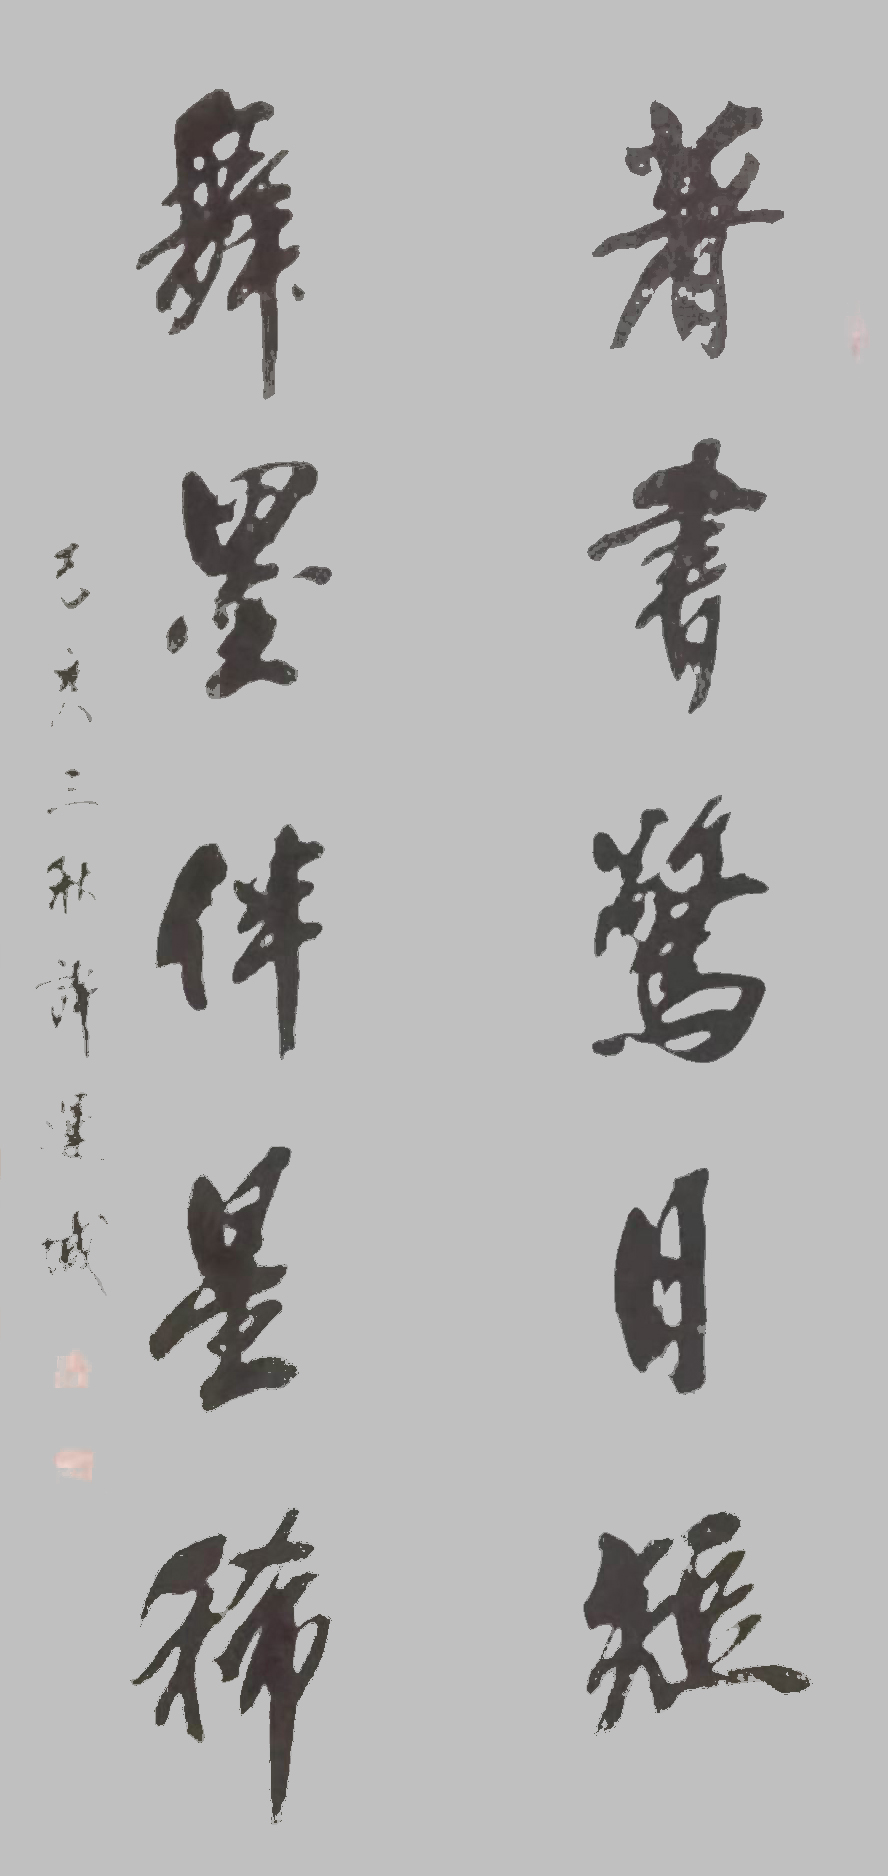 著書驚日短
舞墨伴星稀
己亥三秋許運城